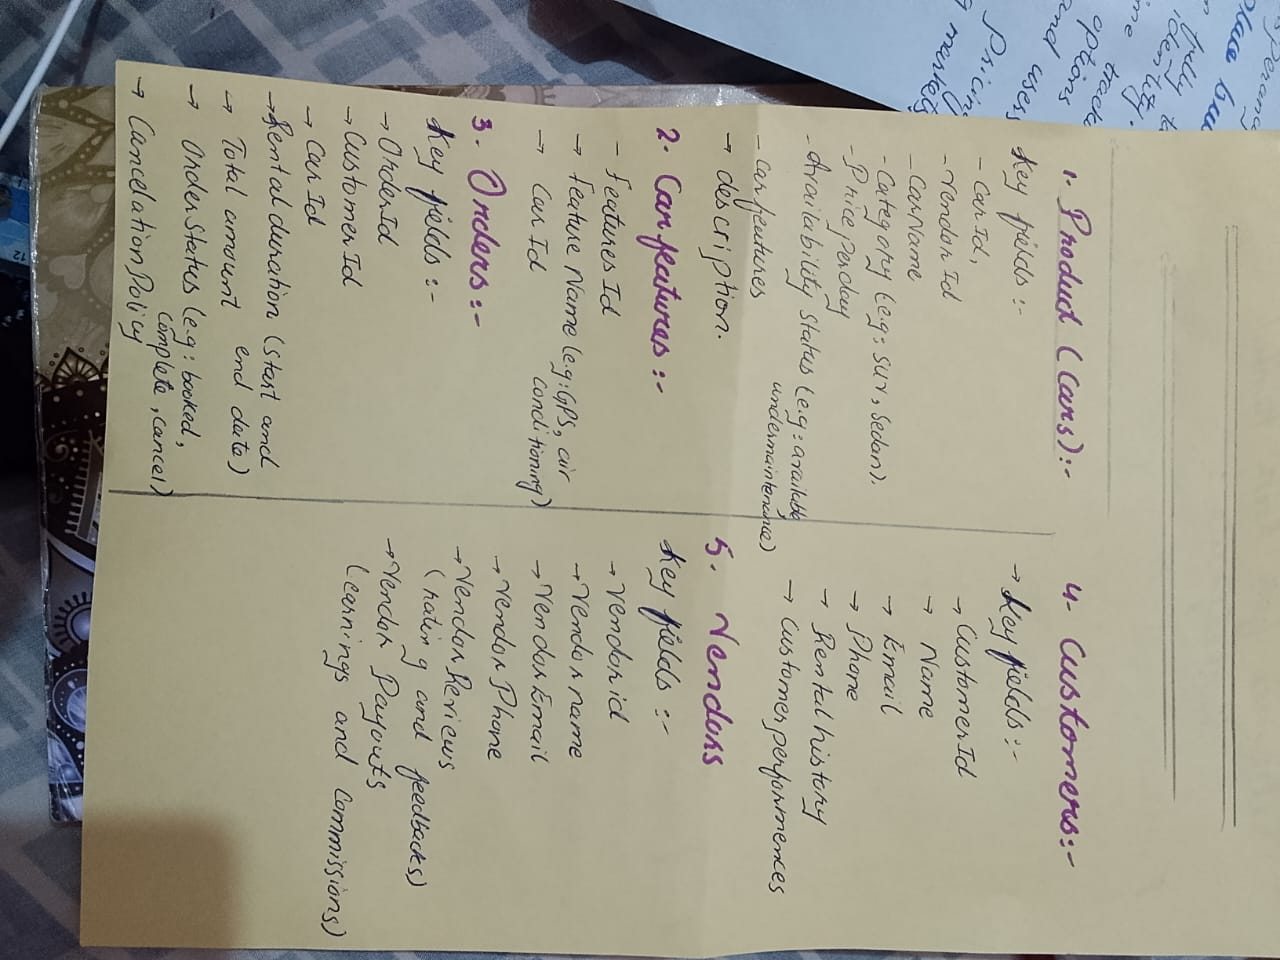 1. Product (Cars):-
Key fields:-
- Car Id,
- Vendor Id
- Car Name
- Category (e.g: SUV, Sedan).
- Price per day
- Availability Status (e.g: available,
undermaintenance)
- Car features
→ description.
2. Car features:-
- Features Id
→ Feature Name (e.g: GPS, air
conditioning)
→ Car Id
3. Orders:-
Key fields:-
→ Order Id
→ Customer Id
→ Car Id
→ Rental duration (start and
end date)
→ Total amount
→ Order Status (e.g: booked,
Complete, cancel)
→ Cancelation Policy
4. Customers:-
→ Key fields:-
→ Customer Id
→ Name
→ Email
→ Phone
→ Rental history
→ Customer performences
5. Vendors
Key fields:-
→ Vendor id
→ Vendor name
→ Vendor Email
→ Vendor Phone
→ Vendor Reviews
(rating and feedbacks)
→ Vendor Payouts
(earnings and commissions)
identity.
track
options
and uses